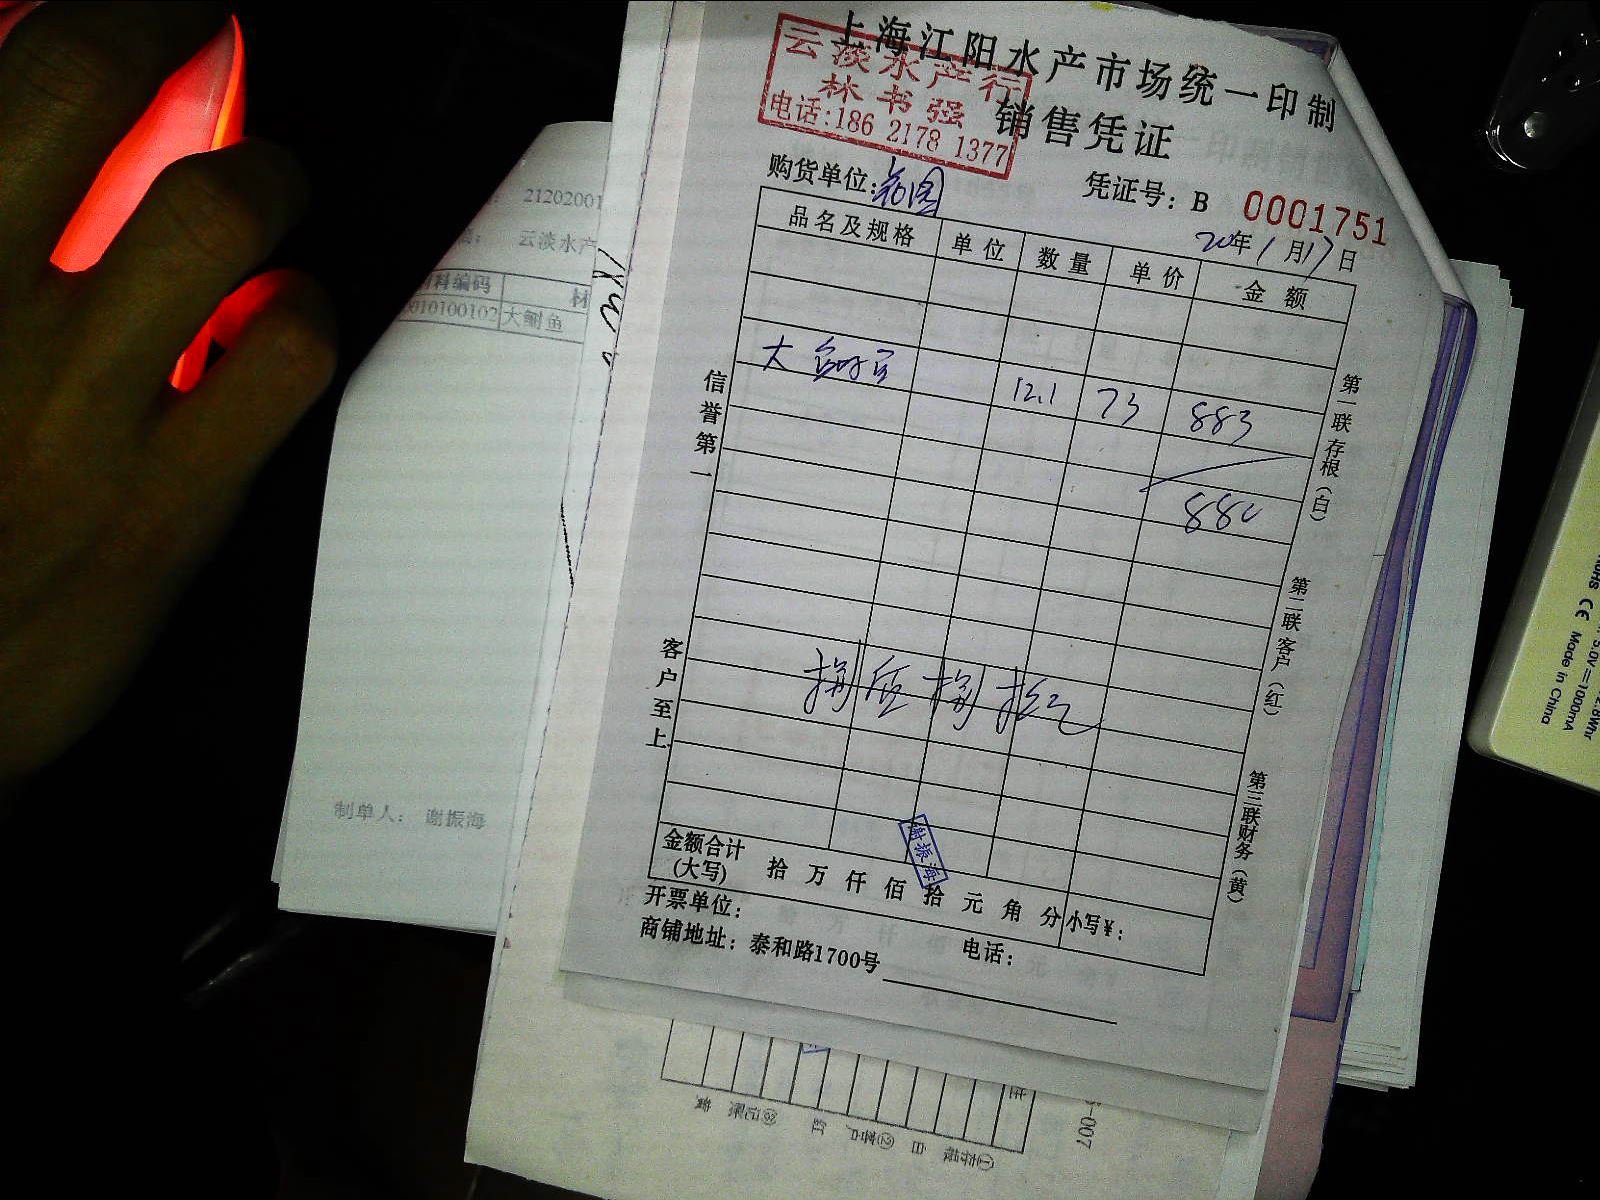 上海江阳水产市场统一印制
云淡水产行
林书强
电话:186 2178 1377
销售凭证
购货单位:
凭证号: B 0001751
20年1月17日
品名及规格 单位 数量 单价 金额
大鲥鱼 12.1 73 883
880
捌佰捌拾元
信誉第一
客户至上
第一联存根(白)
第二联客户(红)
第三联财务(黄)
谢振海
金额合计(大写) 拾万仟佰拾元角分 小写¥:
开票单位:
电话:
商铺地址: 泰和路1700号
21202001
云淡水产
料编码 材
010100102 大鲥鱼
制单人: 谢振海
RoHS CE
5.0V=1000mA
Made in China
-007